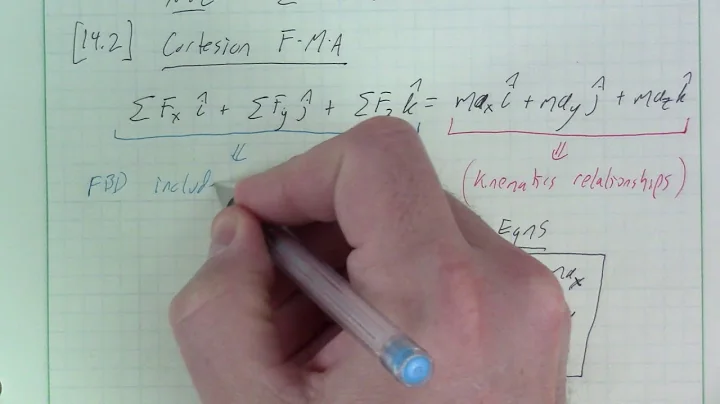 [14.2] Cartesian F=M·A
ΣFₓ î + ΣFᵧ ĵ + ΣF𝓏 k̂ = maₓ î + maᵧ ĵ + ma𝓏 k̂
FBD includ
(Kinematics relationships)
Eqns
maₓ